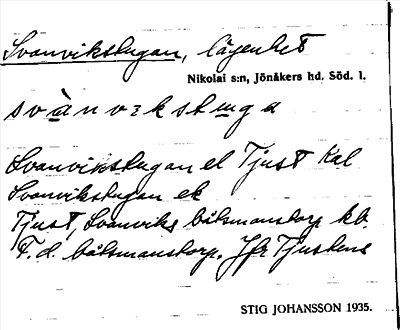 Svanvikstugan, lägenhet
Nikolai s:n, Jönåkers hd. Söd. l.
svànvikstuga
Svanvikstugan el Tjust Kal
Svanvikstugan ek
Tjust, Svanviks båtsmanstorp kb.
F. d. båtsmanstorp. Jfr Tjustens
STIG JOHANSSON 1935.